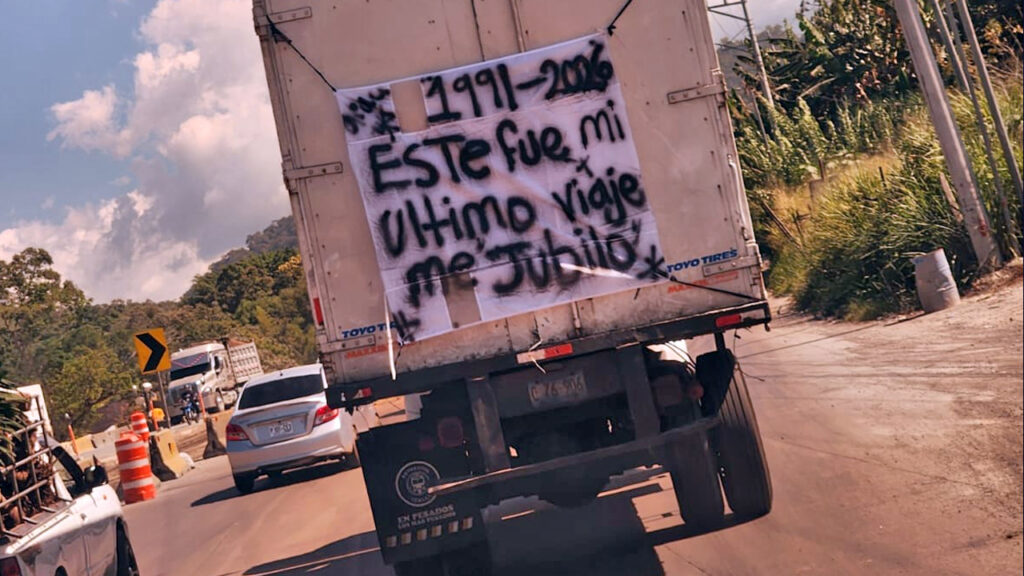 1991-2026
Este fue mi
Ultimo viaje
me Jubilo
TOYO TIRES
TOYO TI
EN PESADOS
LOS MAS PESADOS